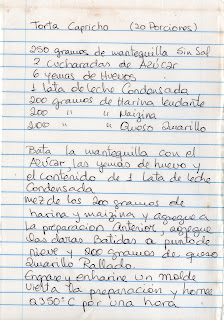 Torta Capricho (20 Porciones)
250 gramos de mantequilla Sin Sal
2 cucharadas de Azúcar
6 yemas de Huevos
1 lata de leche Condensada
200 gramos de Harina leudante
200 " " Maizina
200 " " Queso Amarillo
Bata la mantequilla con el
Azúcar las yemas de huevo y
el contenido de 1 lata de leche
Condensada
mezde los 200 gramos de
harina y maizina y agregue a
la preparación Anterior, agregue
las claras Batidas a punto de
nieve y 200 gramos de queso
Amarillo Rallado.
Engrase y enharine un molde
vierta la preparación y hornee
a 350°C por una hora